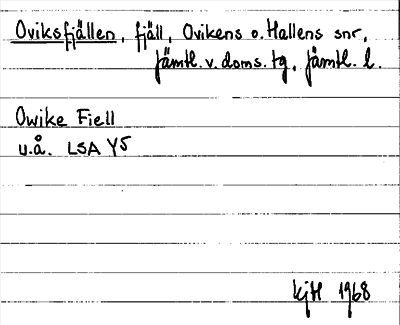 Oviksfjällen, fjäll, Ovikens o. Hallens snr,
Jämtl. v. doms. tg, Jämtl. l.
Owike Fiell
u.å. LSA Y5
KjH 1968